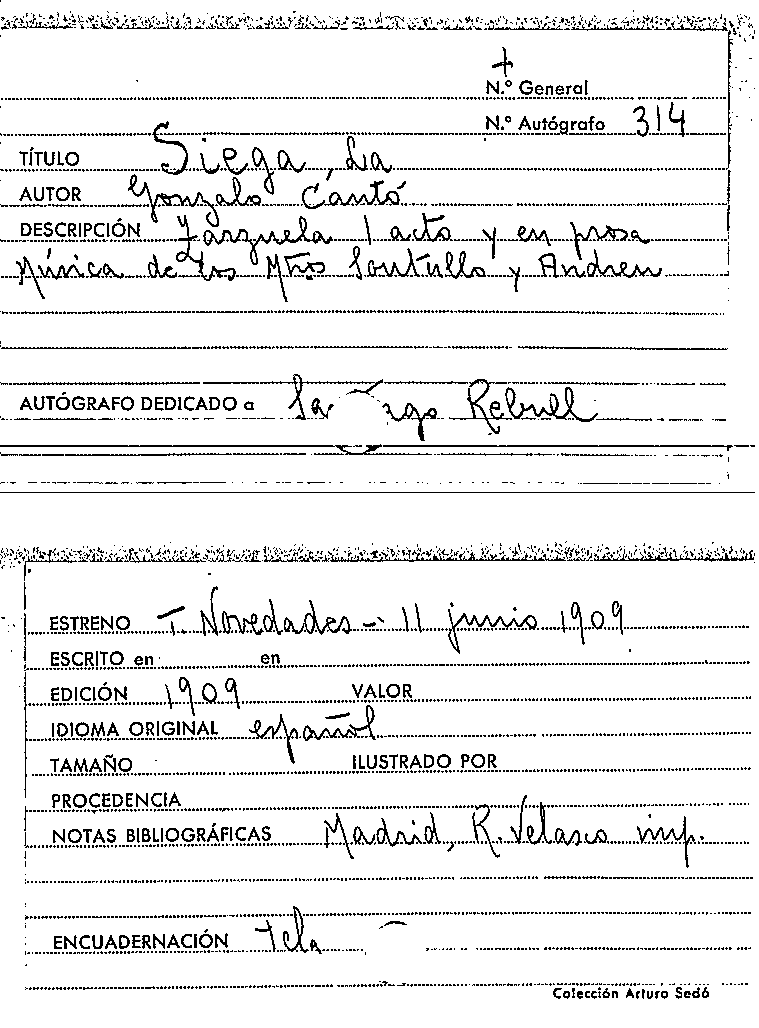 +
N.º General
N.º Autógrafo 314
TÍTULO Siega, La
AUTOR Gonzalo Cantó
DESCRIPCIÓN Zarzuela 1 acto y en prosa
Música de los Mtros Soutullo y Andreu
AUTÓGRAFO DEDICADO a Rebull
ESTRENO T. Novedades - 11 junio 1909
ESCRITO en en
EDICIÓN 1909 VALOR
IDIOMA ORIGINAL español
TAMAÑO ILUSTRADO POR
PROCEDENCIA
NOTAS BIBLIOGRÁFICAS Madrid, R. Velasco imp.
ENCUADERNACIÓN tela
Colección Arturo Sedó